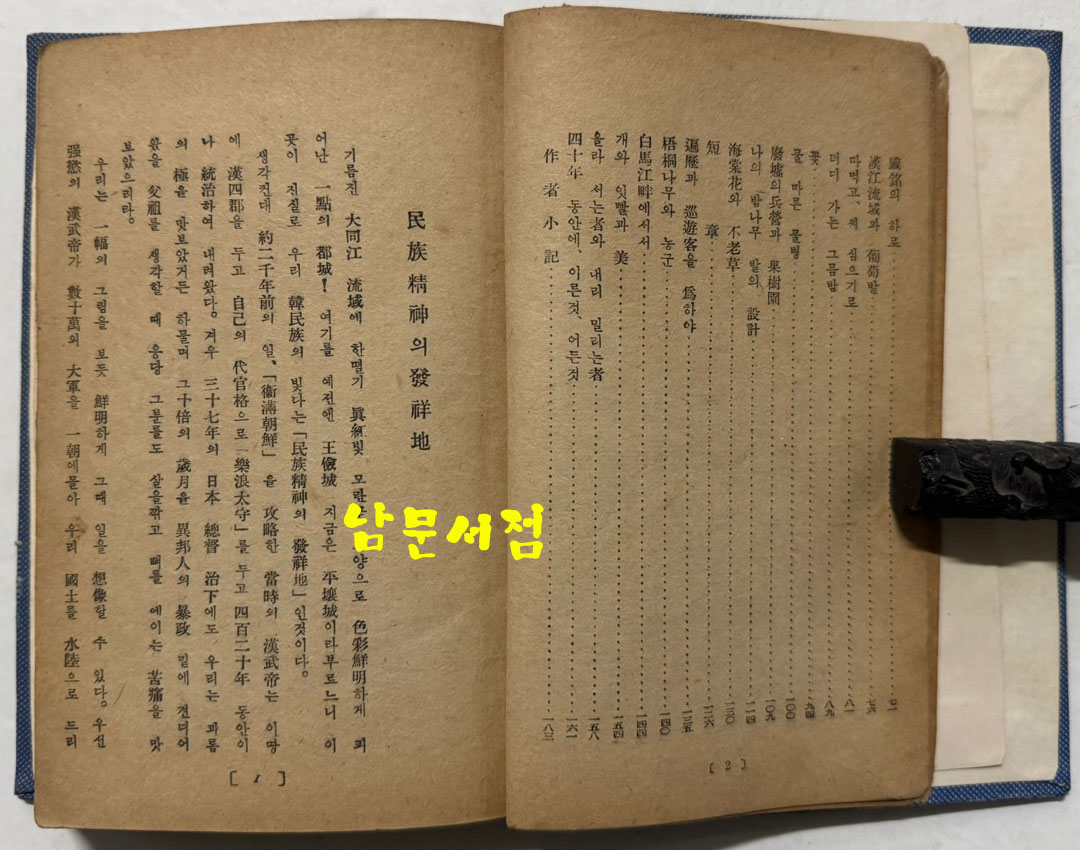 箴銘의 하로 七一
漢江流域과 葡萄밭 七六
따먹고、찌 심으기로 八一
더디 가는 그믐밤 八九
꽃 九四
물 마른 물병 一〇〇
廢墟의兵營과 果樹園 一〇九
나의 (밤나무 밭의 設計 一一四
海棠花와 不老草 一二〇
短章 一二六
遍歷과 巡遊客을 爲하야 一三五
梧桐나무와 농군 一四〇
白馬江畔에서서 一四四
개와 잇빨과 美 一五四
올라 서는者와 내리 밀리는者 一五八
四十年 동안에、이른것、어든것 一六一
作者小記 一八三
[ 2 ]
民族精神의發祥地
기름진 大同江 流域에 한떨기 眞紅빛 모란 양으로 色彩鮮明하게 피
어난 一點의 都城! 여기를 예전엔 王儉城 지금은 平壤城이라부르느니 이
곳이 진질로 우리 韓民族의 빛다는「民族精神의 發祥地」인것이다。
생각컨대 約二千年前의 일、「衞滿朝鮮」을 攻略한 當時의 漢武帝는 이땅
에 漢四郡을 두고 自己의 代官格으로「樂浪太守」를 두고 四百二十年 동안이
나 統治하여 내려왔다。겨우 三十七年의 日本 總督 治下에도 우리는 괴롬
의 極을 맛보았거든 하물며 그十倍의 歲月을 異邦人의 暴政 밑에 견디어
왔을 父祖를 생각할 때 응당 그분들도 살을깎고 뼈를 에이는 苦痛을 맛
보았으리라。
우리는 一幅의 그림을 보듯 鮮明하게 그때 일을 想像할 수 있다。우선
强慾의 漢武帝가 數十萬의 大軍을 一朝에몰아 우리 國土를 水陸으로 드리
[ 1 ]
남문서점